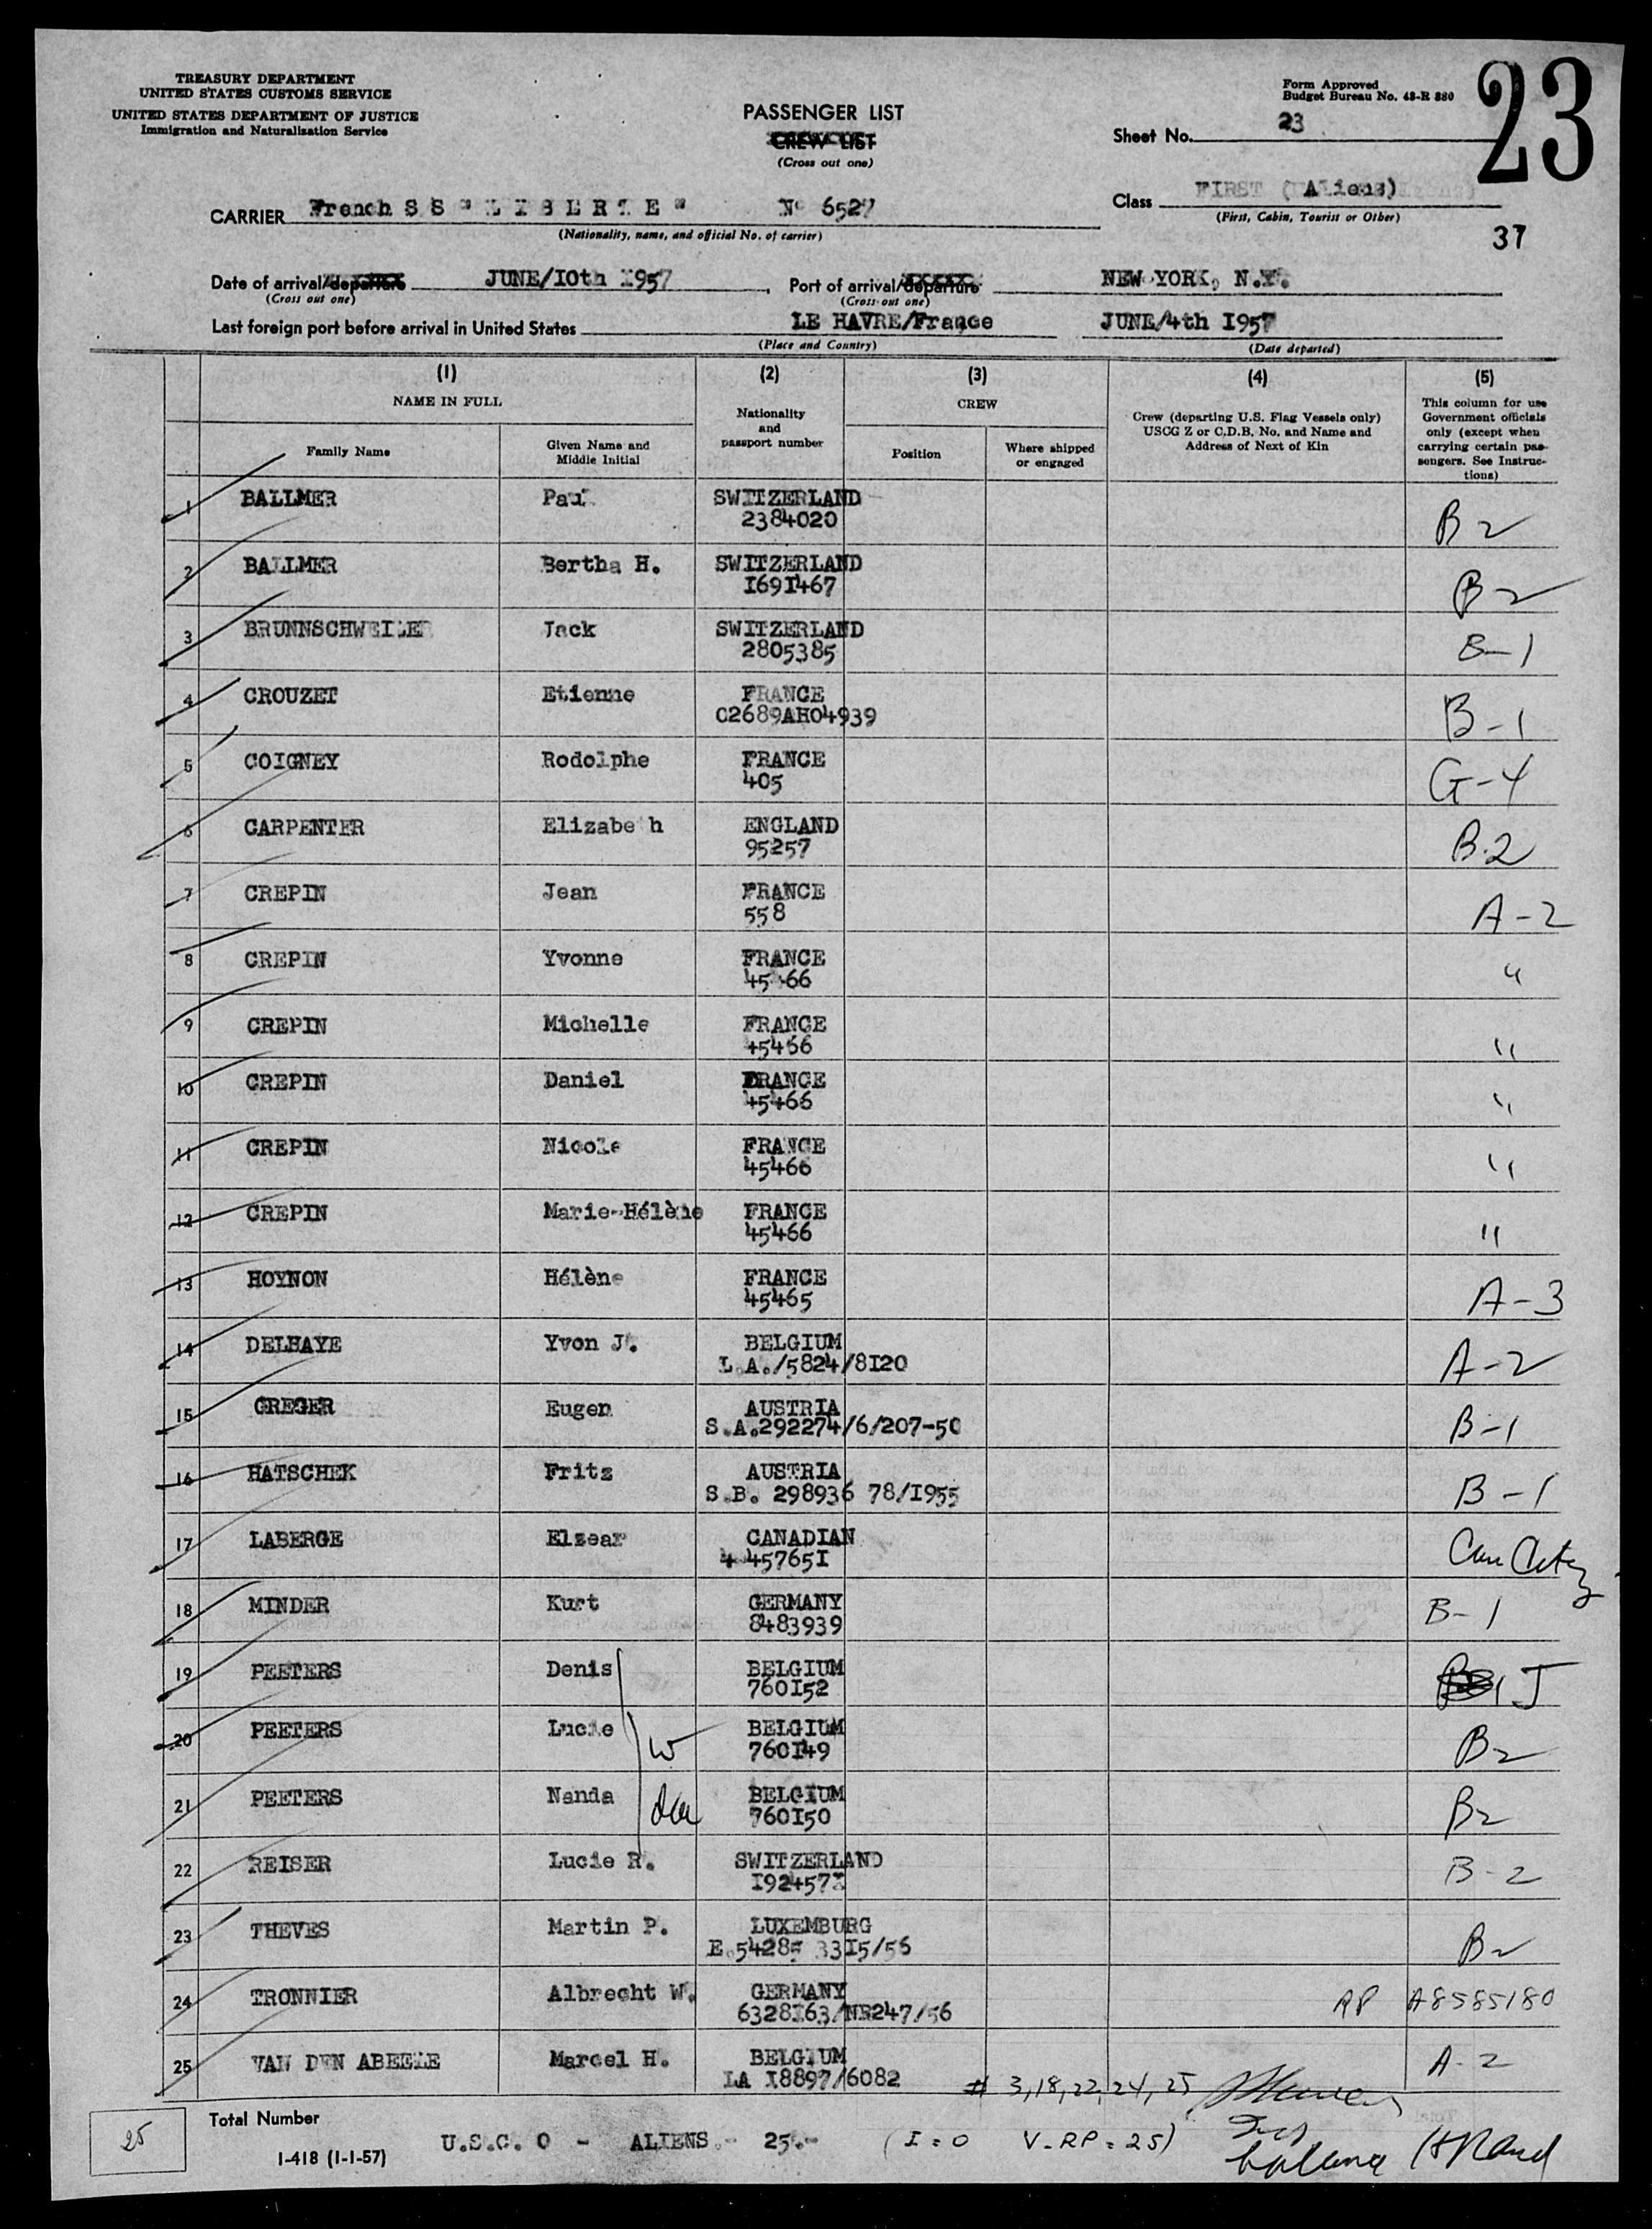 TREASURY DEPARTMENT
UNITED STATES CUSTOMS SERVICE
UNITED STATES DEPARTMENT OF JUSTICE
Immigration and Naturalization Service
PASSENGER LIST
CREW LIST
(Cross out one)
Form Approved
Budget Bureau No. 43-R 880
23
Sheet No. 23
Class FIRST (Aliens)
(First, Cabin, Tourist or Other)
37
CARRIER French S S " L I B E R T E " N° 6527
(Nationality, name, and official No. of carrier)
Date of arrival/departure JUNE/I0th I957, Port of arrival/departure NEW YORK, N.Y.
(Cross out one) (Cross out one)
Last foreign port before arrival in United States LE HAVRE/France JUNE/4th I957
(Place and Country) (Date departed)
(1) (2) (3) (4) (5)
NAME IN FULL
Family Name
Given Name and Middle Initial
Nationality and passport number
CREW
Position
Where shipped or engaged
Crew (departing U.S. Flag Vessels only)
USCG Z or C.D.B. No. and Name and
Address of Next of Kin
This column for use
Government officials
only (except when
carrying certain pas-
sengers. See Instruc-
tions)
1 BALLMER Paul SWITZERLAND B2
2384020
2 BALLMER Bertha H. SWITZERLAND B2
I69I467
3 BRUNNSCHWEILER Jack SWITZERLAND B-1
2805385
4 CROUZET Etienne FRANCE B-1
C2689AH04939
5 COIGNEY Rodolphe FRANCE G-4
405
6 CARPENTER Elizabe h ENGLAND B.2
95257
7 CREPIN Jean FRANCE A-2
558
8 CREPIN Yvonne FRANCE "
45466
9 CREPIN Michelle FRANCE "
45466
10 CREPIN Daniel FRANCE "
45466
11 CREPIN Nicole FRANCE "
45466
12 CREPIN Marie-Hélène FRANCE "
45466
13 HOYNON Hélène FRANCE A-3
45465
14 DELHAYE Yvon J. BELGIUM A-2
L.A./5824/8I20
15 GREGER Eugen AUSTRIA B-1
S.A.292274/6/207-50
16 HATSCHEK Fritz AUSTRIA B-1
S.B. 298936 78/I955
17 LABERGE Elzear CANADIAN Can Citz
4-45765I
18 MINDER Kurt GERMANY B-1
8483939
19 PEETERS Denis BELGIUM J
760I52
20 PEETERS Lucie w BELGIUM B2
760I49
21 PEETERS Nanda dau BELGIUM B2
760I50
22 REISER Lucie R. SWITZERLAND B-2
I92457I
23 THEVES Martin P. LUXEMBURG B2
E.54285 33I5/56
24 TRONNIER Albrecht W. GERMANY RP A8585180
6328I63/NR247/56
25 VAN DEN ABEELE Marcel H. BELGIUM A-2
LA I8897/6082
# 3,18,22,24,25
25 Total Number
U.S.C. 0 - ALIENS.- 25.- (I=0 V-RP=25)
I-418 (1-1-57)